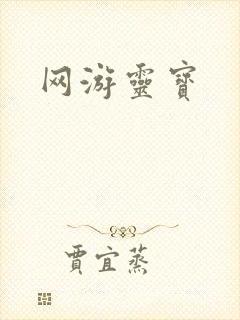 网游靈寶
賈宜蒸